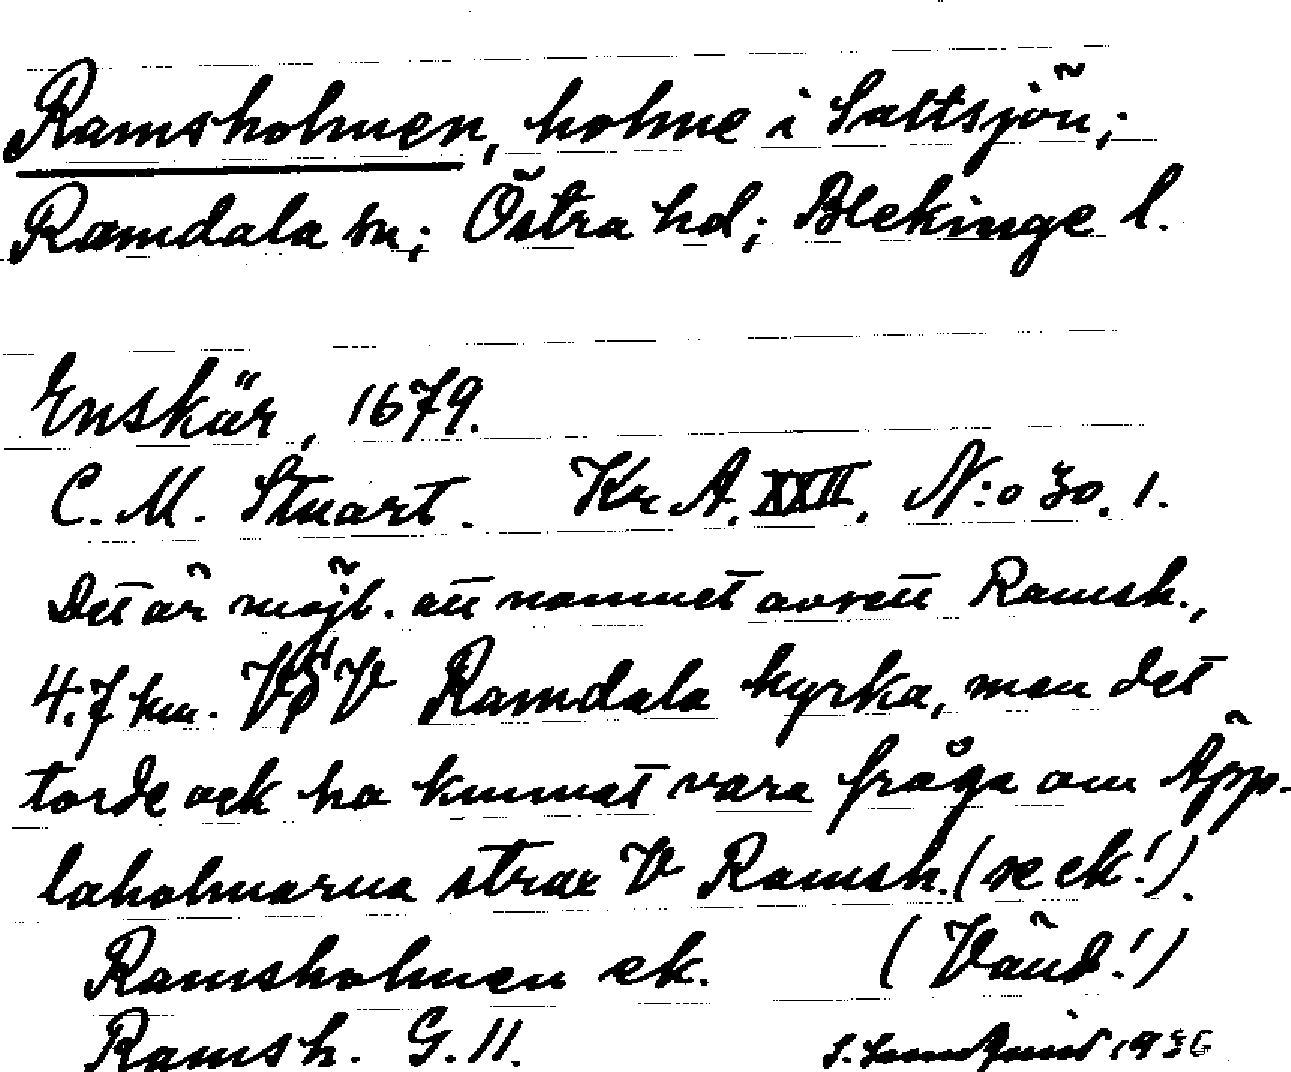 Ramsholmen, holme i Saltsjön;
Ramdala sn; Östra hd; Blekinge l.
Enskär, 1679.
C. M. Stuart. Kr A. XXII. N:o 30. 1.
Det är möjl. att namnet avsett Ramsh.,
4.7 km. VSV Ramdala kyrka, men det
torde ock ha kunnat vara fråga om Äpp-
laholmarna strax V Ramsh. (se ek!).
Ramsholmen ek. (Vänd!)
Ramsh. G. 11. 1936